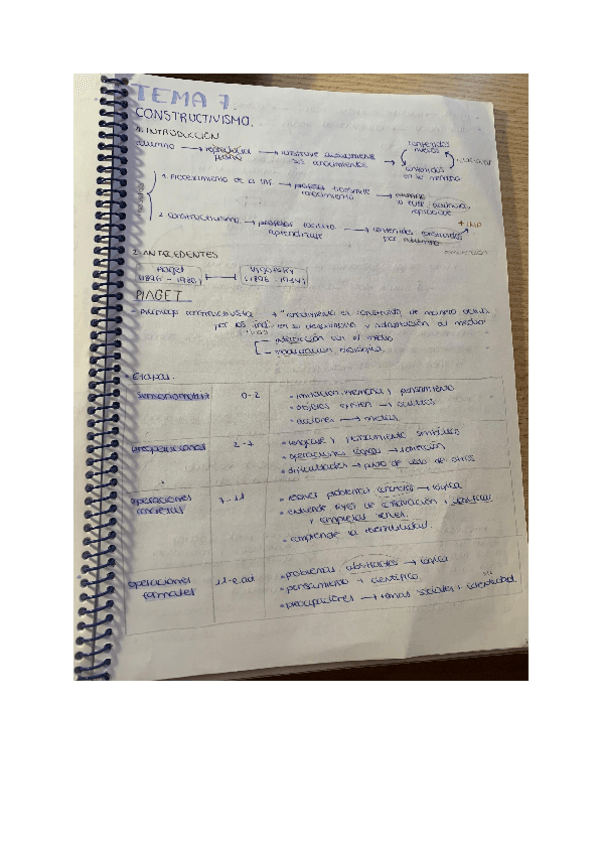 TEMA 7.
CONSTRUCTIVISMO.
1. INTRODUCCIÓN
alumno → → construye activamente sus conocimientos →
contenidos nuevos
contenidos en su memoria
1. Procesamiento de la INF → profesor transmite conocimiento → alumno
reproduce
2. Constructivismo → profesor facilita aprendizaje → contenidos construidos por alumno
+ IMP
2. ANTECEDENTES
Piaget (1896 - 1980) Vigotsky (1896 - 1934)
PIAGET
- Principio constructivista → "conocimiento es construido de manera activa
por los ind. en su desarrollo y adaptación al medio"
- interacción con el medio
- maduración biológica
• Etapas.
sensoriomotriz 0-2
• imitación, memoria y pensamiento
• objetos existen → ocultos
• acciones → metas
preoperacional 2-7
• lenguaje y pensamiento simbólico
• operaciones lógicas → 
• dificultades → punto de vista de otros
operaciones concretas 7-11
• resolver problemas concretos → lógica
• entiende leyes de conservación, clasificar
y empieza series.
• comprende la reversibilidad.
operaciones formales 11-e.ad
• problemas abstractos → lógica
• pensamiento + científico
• preocupaciones → temas sociales, identidad